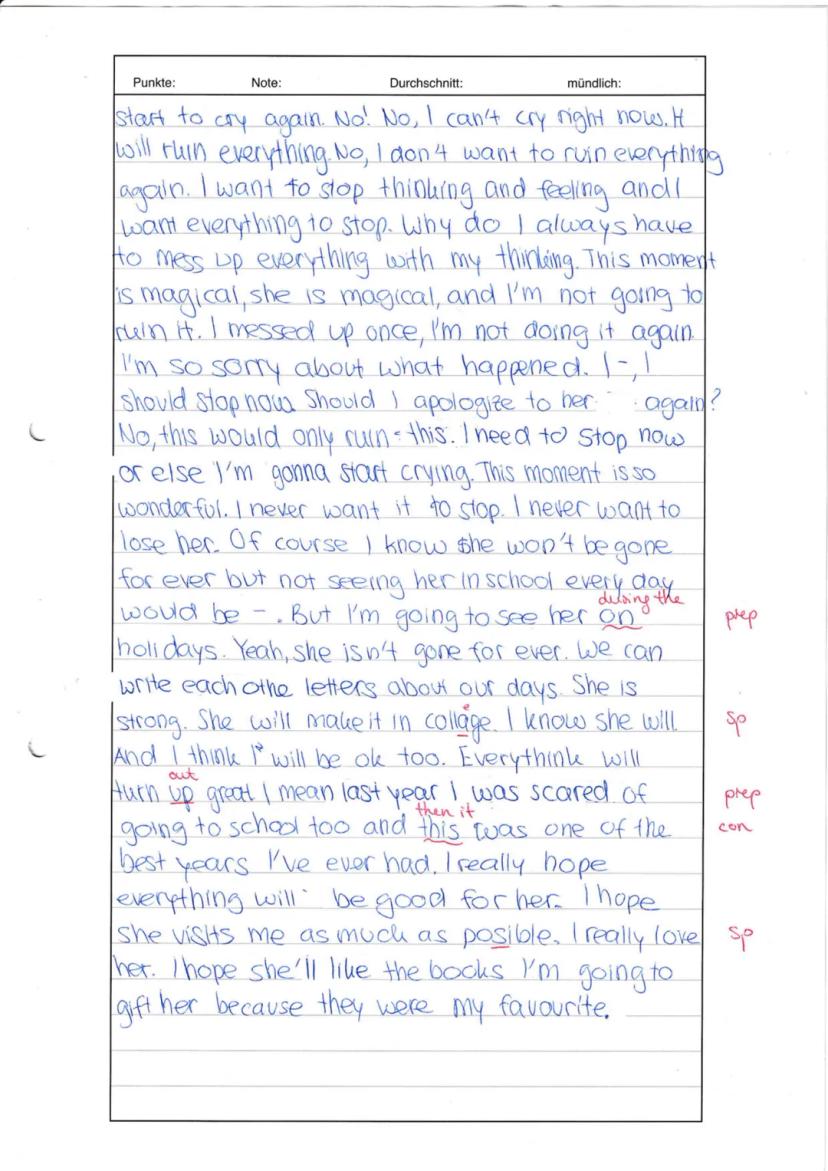 Punkte: Note: Durchschnitt: mündlich:
start to cry again. No! No, I can't cry right now. It
will ruin everything. No, I don't want to ruin everything
again. I want to stop thinking and feeling and I
want everything to stop. Why do I always have
to mess up everything with my thinking. This moment
is magical, she is magical, and I'm not going to
ruin it. I messed up once, I'm not doing it again.
I'm so sorry about what happened. I -, I
should stop now. Should I apologize to her again?
No, this would only ruin this. I need to stop now
or else I'm gonna start crying. This moment is so
wonderful. I never want it to stop. I never want to
lose her. Of course I know she won't be gone
for ever but not seeing her in school every day
during the
would be -. But I'm going to see her on prep
holidays. Yeah, she isn't gone for ever. We can
write each othe letters about our days. She is
e
strong. She will make it in collage. I know she will. sp
And I think I will be ok too. Everythink will
out
turn up great I mean last year I was scared of prep
then it
going to school too and this was one of the con
best years I've ever had. I really hope
everything will be good for her. I hope
she visits me as much as posible. I really love sp
her. I hope she'll like the books I'm going to
gift her because they were my favourite.